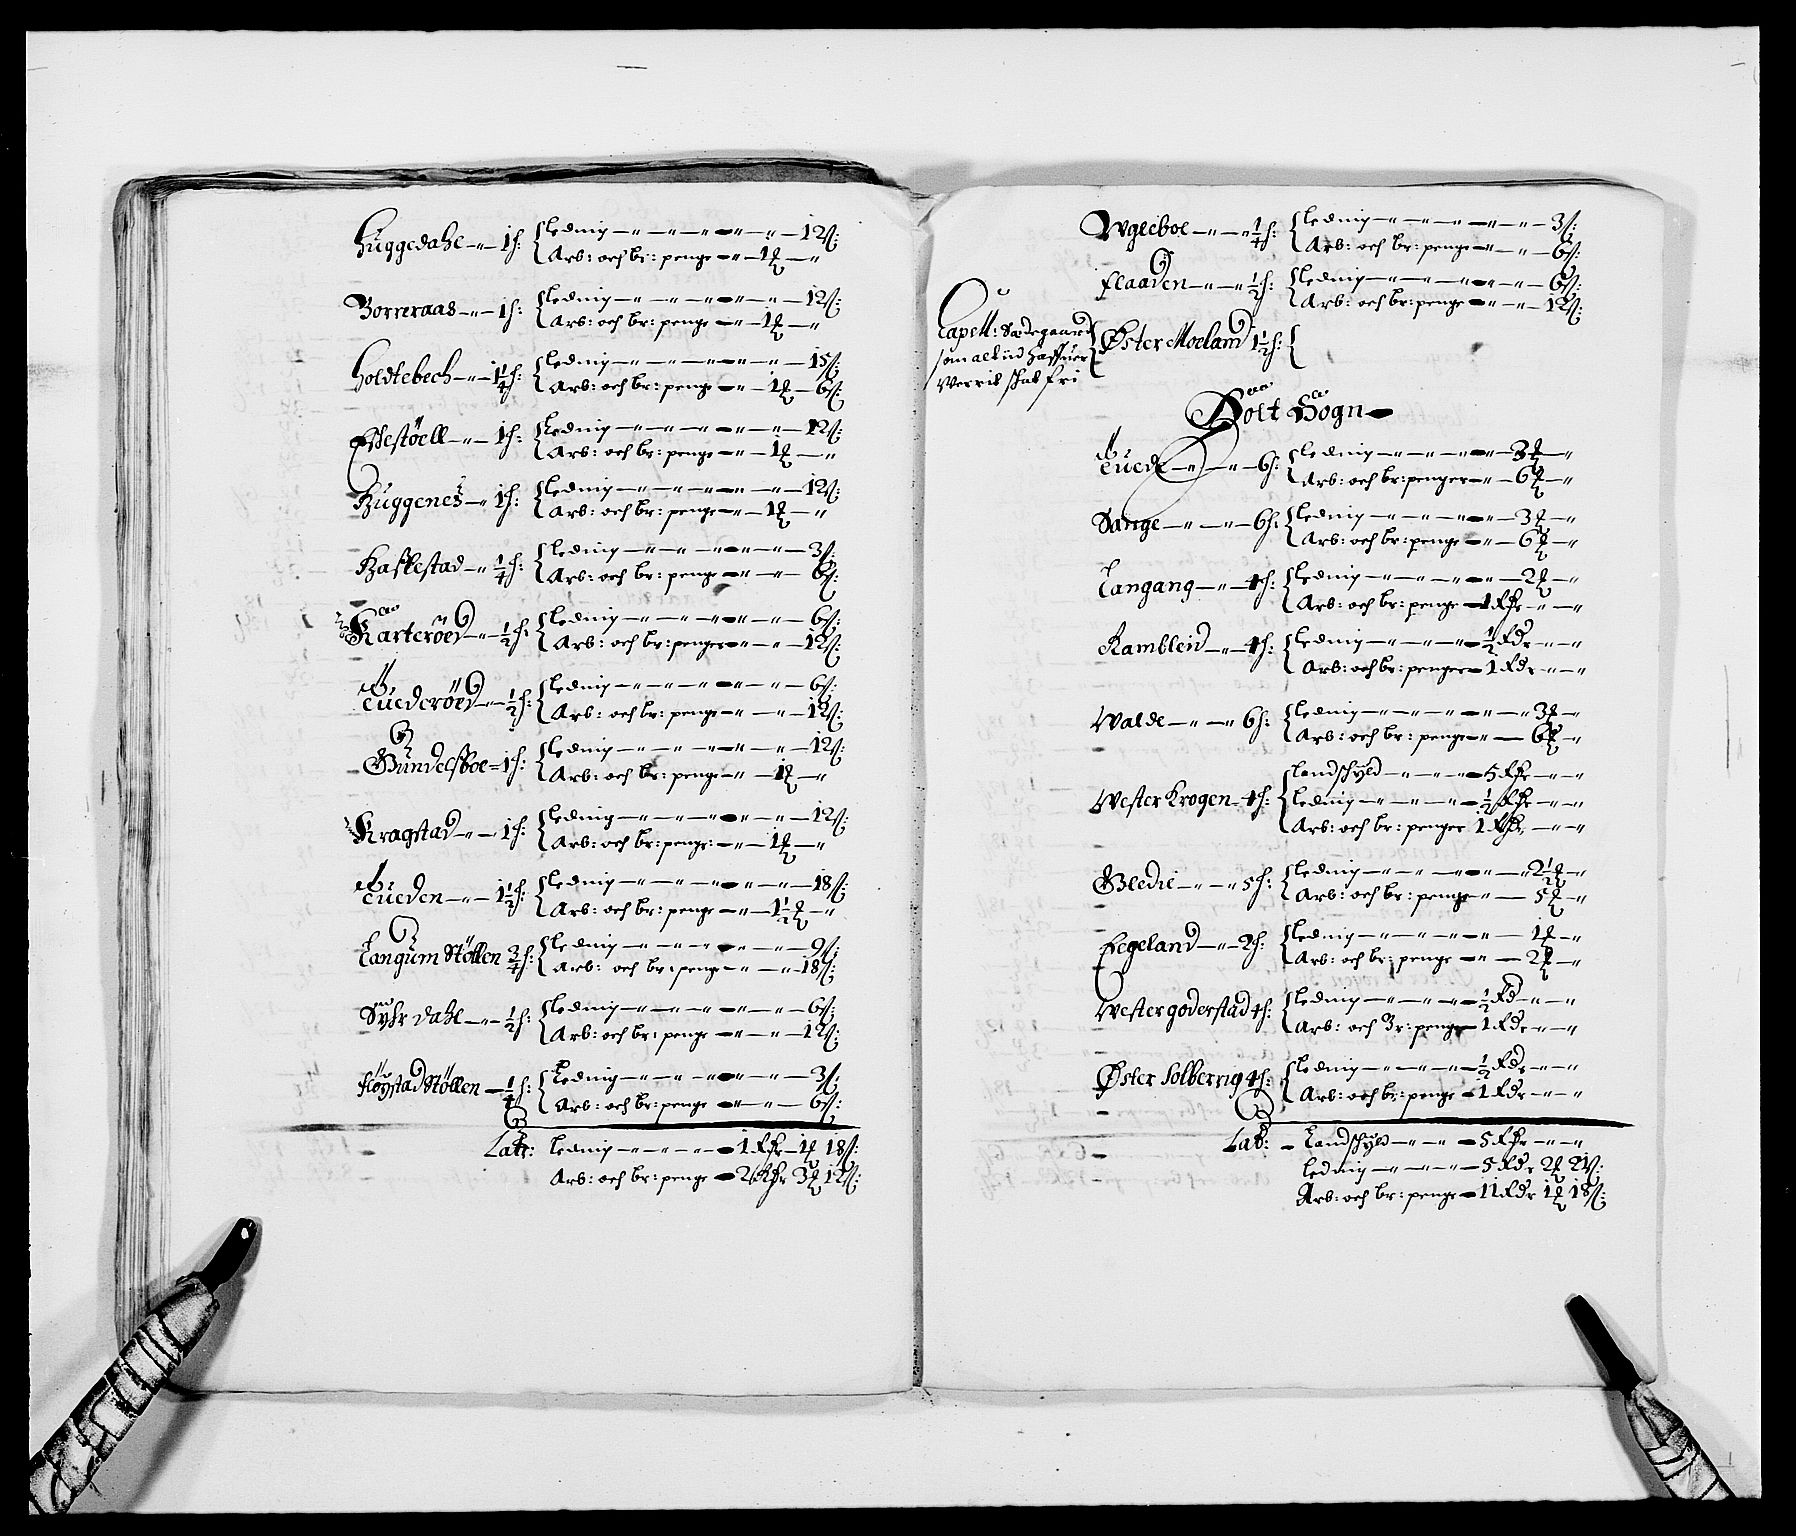 Huggedahl – 1 h: { Leding – 12 s:
Arb: och br: penge – 1 #
Borreraas – 1 h: { Leding – 12 s:
Arb: och br: penge – 1 #
Holdtebech – 1¼ h: { Leding – 15 s:
Arb: och br: penge – 1 # – 6 s:
– 1 h: { Leding – 12 s:
Arb: och br: penge – 1 #
Huggenes – 1 h: { Leding – 12 s:
Arb: och br: penge – 1 #
Haskestad – ¼ h: { Leding – 3 s:
Arb: och br: penge – 6 s:
Karteröed – ½ h: { Leding – 6 s:
Arb: och br: penger – 12 s:
Tuederöed – ½ h: { Leding – 6 s:
Arb: och br: penge – 12 s:
Gundelsboe – 1 h: { Leding – 12 s:
Arb: och br: penge – 1 #
Kragstad – 1 h: { Leding – 12 s:
Arb: och br: penge – 1 #
Tueden – 1½ h: { Leding – 18 s:
Arb: och br: penge – 1½ #
Langum Stöllen ¾ h: { Leding – 9 s:
Arb: och br: penge – 18 s:
dahl – ½ h: { Leding – 6 s:
Arb: och br: penge – 12 s:
Flöystad Stöllen – ¼ h: { Leding – 3 s:
Arb: och br: penge – 6 s:
Lat: Leding – 1 Rdr – 1 # 18 s:
Arb: och br: penge – 2 Rdr 3 # 12 s:
Ugleboe – ¼ h: { Leding – 3 s:
Arb: och br: penge – 6 s:
Flaaden – ½ h: { Leding – 6 s:
Arb: och br: penge – 12 s:
Capell: Sædegaard
som altiid haffuer
Øster Moeland 1½ h: {
Werrit schat fri
Holt Sogn
Tuede – 6 h: { Leding – 3 #
Arb: och br: penger – 6 #
Sange – 6 h: { Leding – 3 #
Arb: och br: penge – 6 #
Langang – 4 h: { Leding – 2 #
Arb: och br: penge – 1 Rdr
Rambleid – 4 h: { Leding – ½ Rdr
Arb: och br: penger – 1 Rdr
Walde – 6 h: { Leding – 3 #
Arb: och br: penge – 6 #
Wester Krogen – 4 h: { Landschyld – 5 Rdr
Leding – ½ Rdr
Arb: och br: penger 1 Rdr
Gledie – 5 h: { Leding – 2½ #
Arb: och br: penge – 5 #
Fegeland – 2 h: { Leding – 1 #
Arb: och br: penge – 2 #
Wester goderstad 4 h: { Leding – ½ Rd
Arb: och Br: penge – 1 Rdr
Øster Solberrig 4 h: { Leding – ½ Rdr
Arb: och br: penge – 1 Rdr
Lat: – Landschyld – 5 Rdr
Leding – 5 Rdr 2 # 21 s:
Arb: och br: penge – 11 Rdr 1 # 18 s: